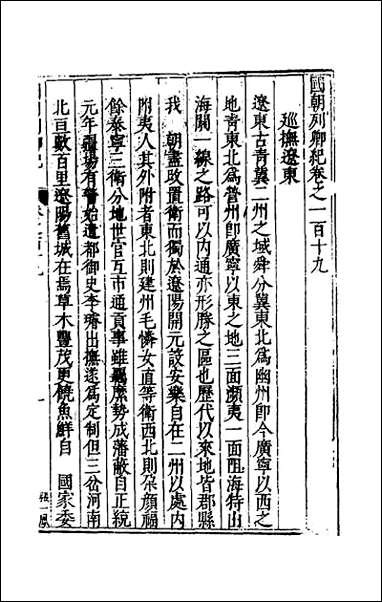 國朝列卿紀卷之一百十九
巡撫遼東
遼東古青冀二州之域舜分冀東北爲幽州卽今廣寧以西之
地青東北爲營州卽廣寧以東之地三面瀕夷一面阻海特出
海關一線之路可以內通亦形勝之區也歷代以來地皆郡縣
我 朝盡政置衛而獨於遼陽開元設安樂自在二州以處內
附夷人其外附者東北則建州毛憐女直等衛西北則朶顏福
餘泰寧三衛分地世官互市通貢事雖羈縻勢成藩蔽自正統
元年疆場有警始遣都御史李濬出撫遂爲定制但三岔河南
北亘數百里遼陽舊城在焉草木豐茂更饒魚鮮自 國家委